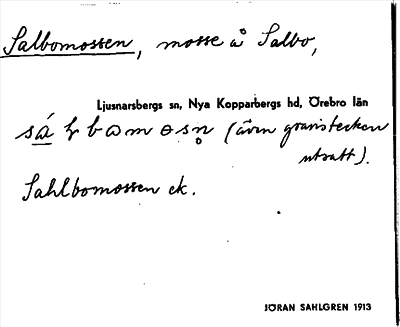 Salbomossen, mosse å Salbo,
Ljusnarsbergs sn, Nya Kopparbergs hd, Örebro län
(även gravistecken
utsatt).
Sahlbomossen ek.
JÖRAN SAHLGREN 1913